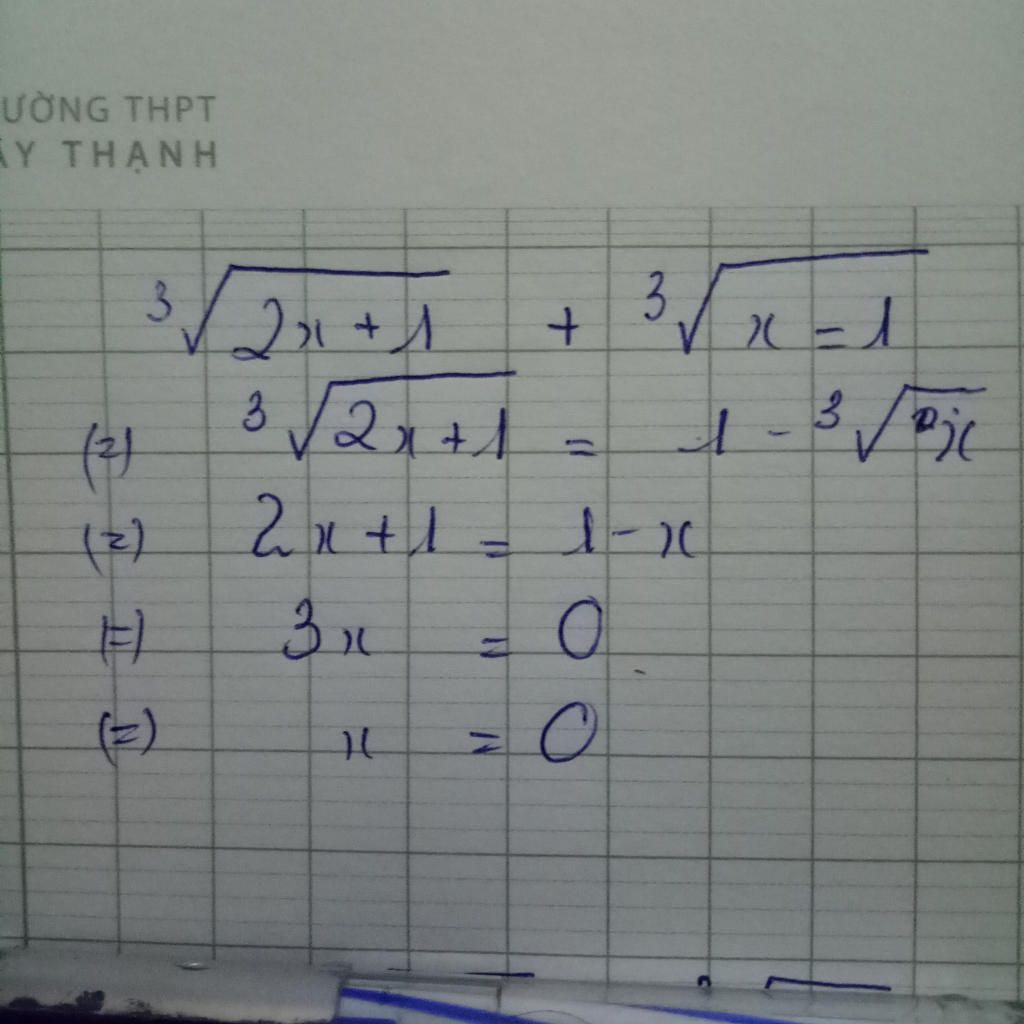 ƯỜNG THPT
ÂY THẠNH
∛(2x + 1) + ∛(x = 1)
(=) ∛(2x + 1) = 1 - ∛x
(=) 2x + 1 = 1 - x
(=) 3x = 0
(=) x = 0